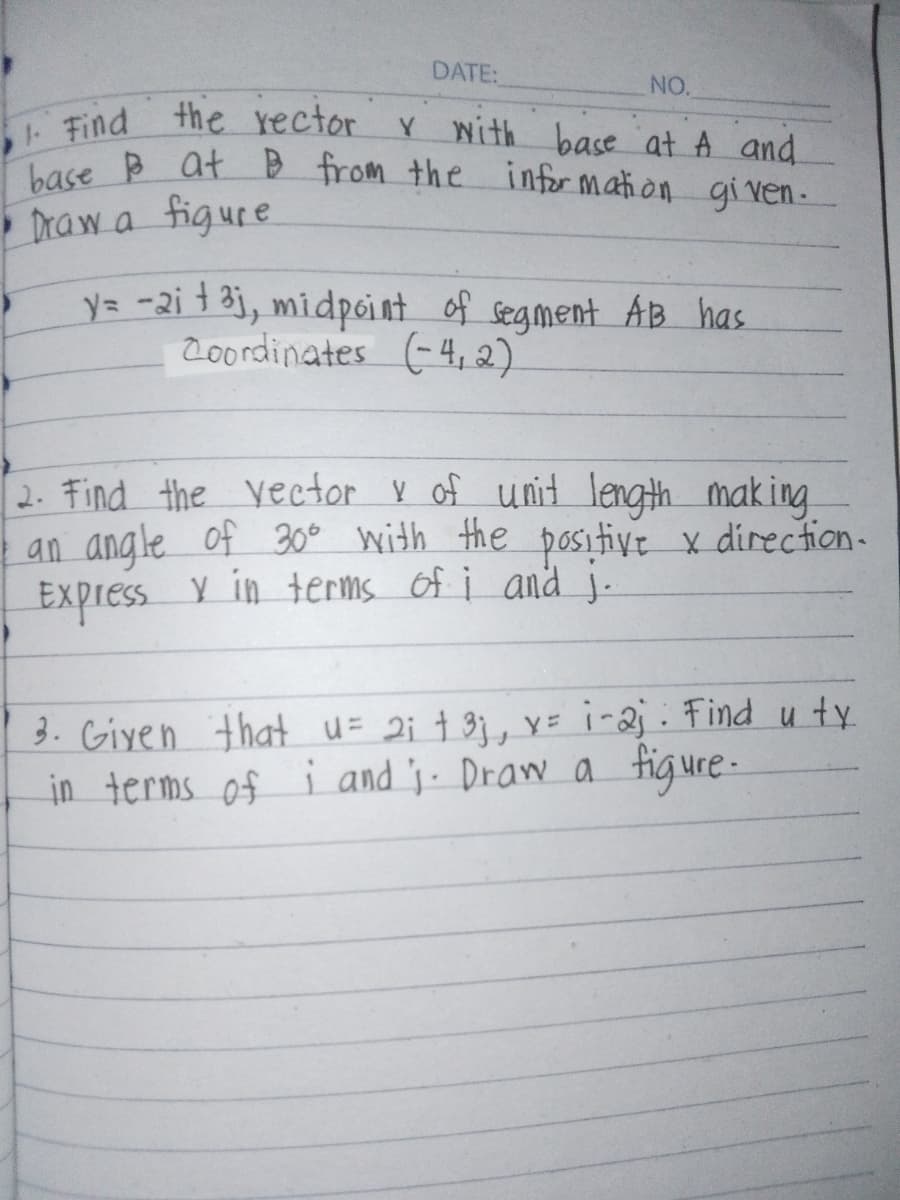 DATE: NO.
1. Find the vector v with base at A and
base B at B from the information given.
Draw a figure
v= -2i + 3j, midpoint of segment AB has
Coordinates (-4, 2)
2. Find the vector v of unit length making
an angle of 30° with the positive x direction.
Express v in terms of i and j.
3. Given that u= 2i + 3j, v= i-2j. Find u + v
in terms of i and j. Draw a figure.